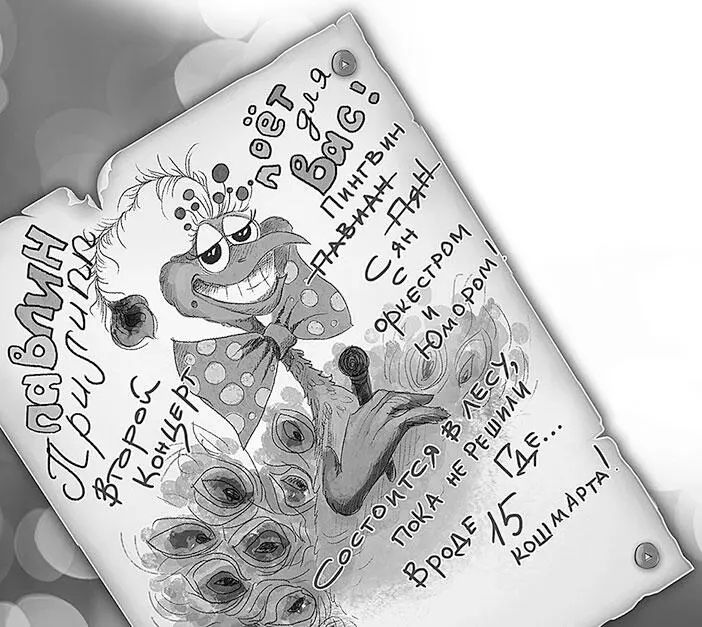 ПАВЛИН
Прилипп
поёт
для
Вас!
Пингвин
ПАВИАН
Сян ПЯН
с
оркестром
и
Юмором!
Второй
Концерт
Состоится в лесу,
пока не решили
Где...
Вроде 15
кошмАрта!